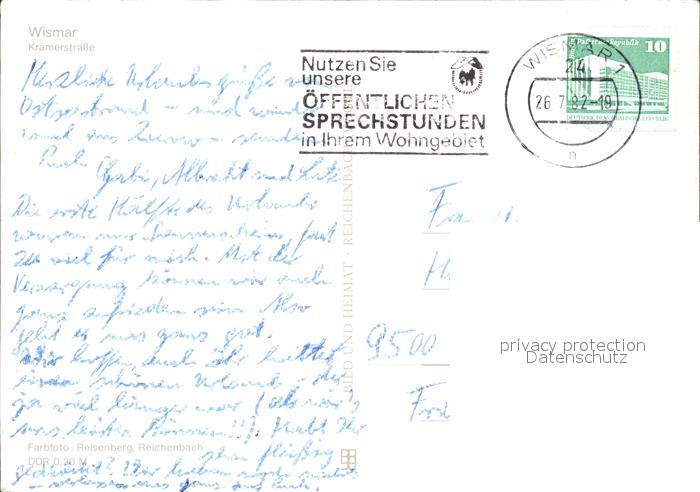 Wismar
Krämerstraße
Nutzen Sie
unsere
ÖFFENTLICHEN
SPRECHSTUNDEN
in Ihrem Wohngebiet
WISMAR 1
24
26.7.82-19
n
10
Palast der Republik
DEUTSCHE DEMOKRATISCHE REPUBLIK
Herzliche Urlaubsgrüße vom
Ostseestrand - und
mal aus - senden
Euch Gabi, Albrecht und
Die erste Hälfte des Urlaubs
waren nur Sonnenschein, fast
zu viel für mich. Mit der
Versorgung können wir auch
ganz zufrieden sein. Also
geht es uns ganz gut.
Wir hoffen auch Ihr hattet
einen schönen Urlaub, der
ja viel länger war (als wir's
uns leisten können!!). Habt Ihr
fleißig
Wir haben
BILD UND HEIMAT · REICHENBACH
9500
privacy protection
Datenschutz
Farbfoto: Reisenberg, Reichenbach
DDR 0,20 M